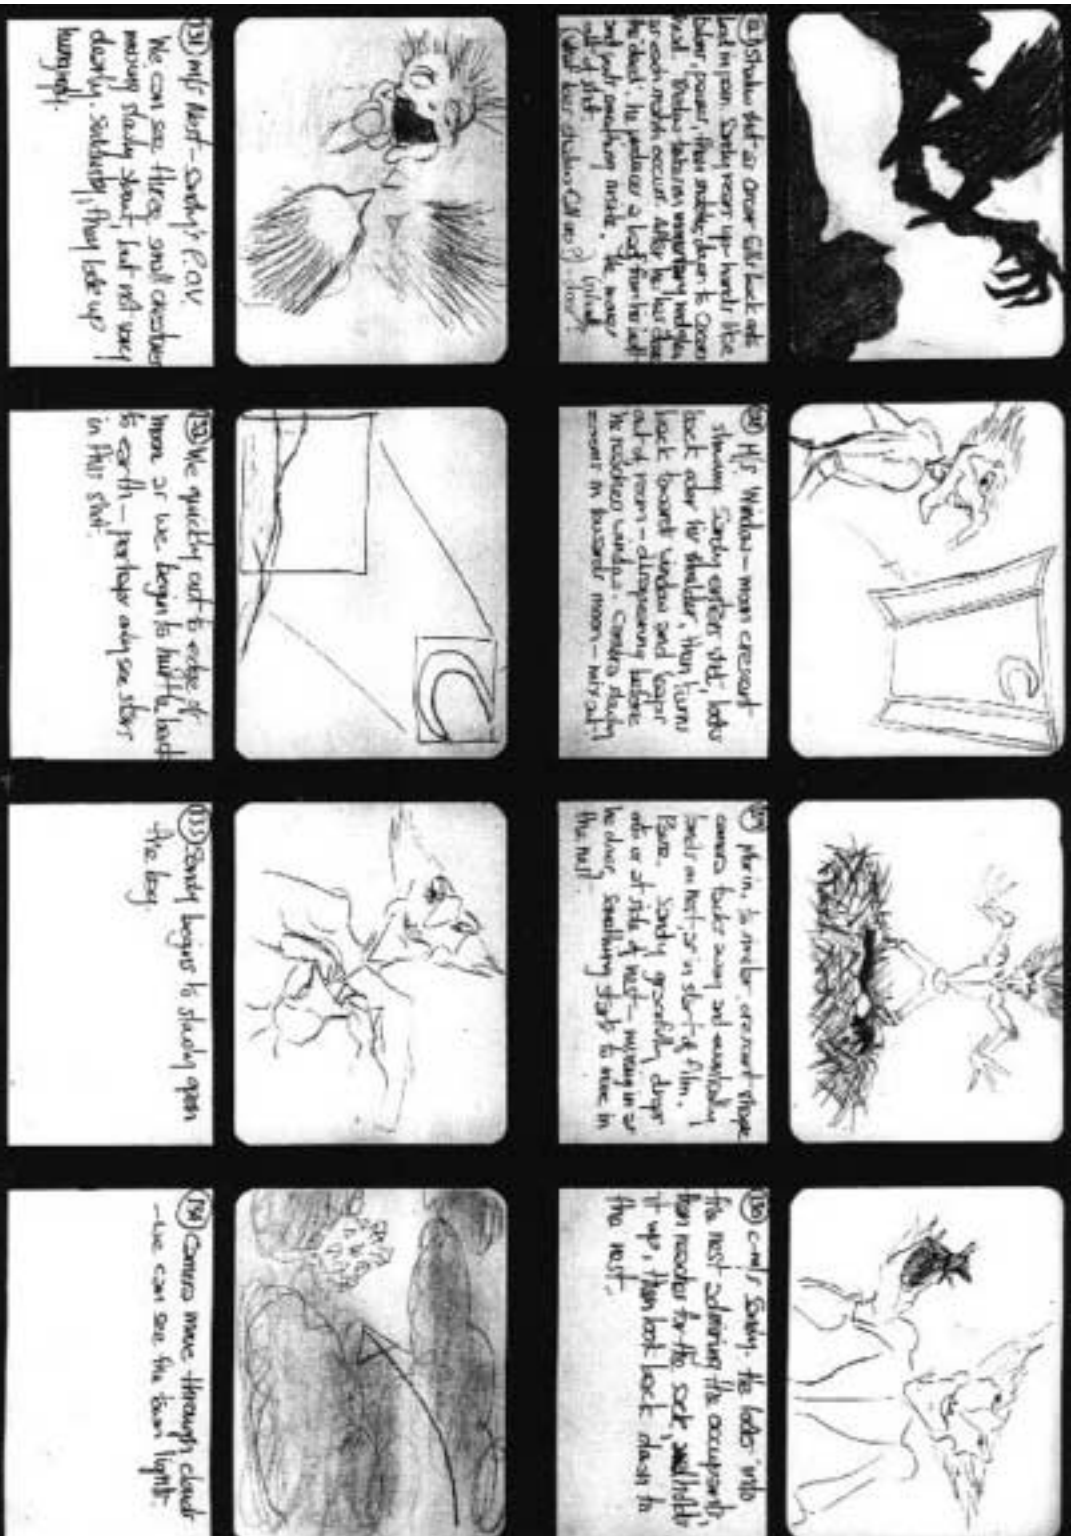 Shadow shot as falls back onto
bed in pain. Sandy rears up - hands like
pauses, then down to
head. Shadow takes on momentary
as each occurs. After he has done
'the deed', he produces a sack from his belt
and puts something inside. He moves
out of shot.
(What does shadow fall on?)
(128) M/S Window - moon crescent
shining. Sandy enters shot, looks
back over his shoulder, then turns
back towards window and leaps
out of room - disappearing before
he reaches window. Camera slowly
zooms in towards moon - mix out,
(129) Mix in, to similar crescent shape
camera tracks away and eventually
lands on nest, as in start of film.
Pause. Sandy gracefully drops
into or at side of nest - moving in as
he does, something starts to move in
the nest.
(130) C-M/S Sandy. He looks into
the nest admiring the occupants,
then reaches for the sack, and holds
it up, then look back down to
the nest.
(131) M/S Nest - Sandy's P.O.V.
We can see three small creatures
moving slowly about, but not very
clearly. Suddenly, they look up
hungrily.
(132) We quickly cut to edge of
moon as we begin to hurtle back
to earth - perhaps only see stars
in this shot.
(133) Sandy begins to slowly open
the bag.
(134) Camera move through clouds
- we can see the town lights.